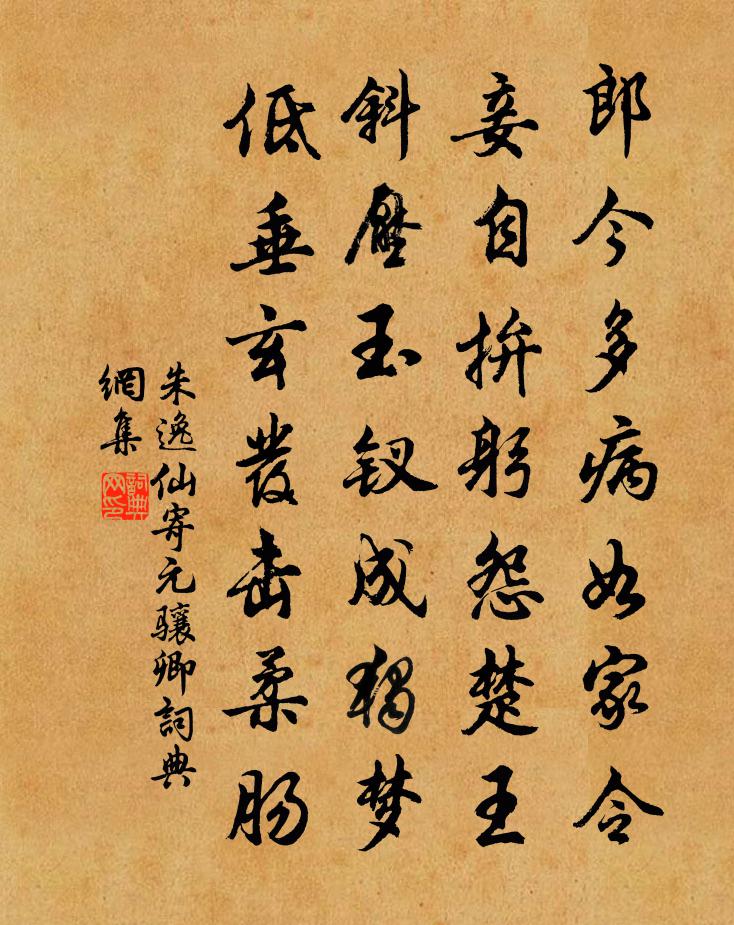 郎今多病如家令
妾自拚躬怨楚王
斜壓玉钗成独梦
低垂玄发击柔肠
朱逸仙寄元骧卿詞典
網集
詞典
网印